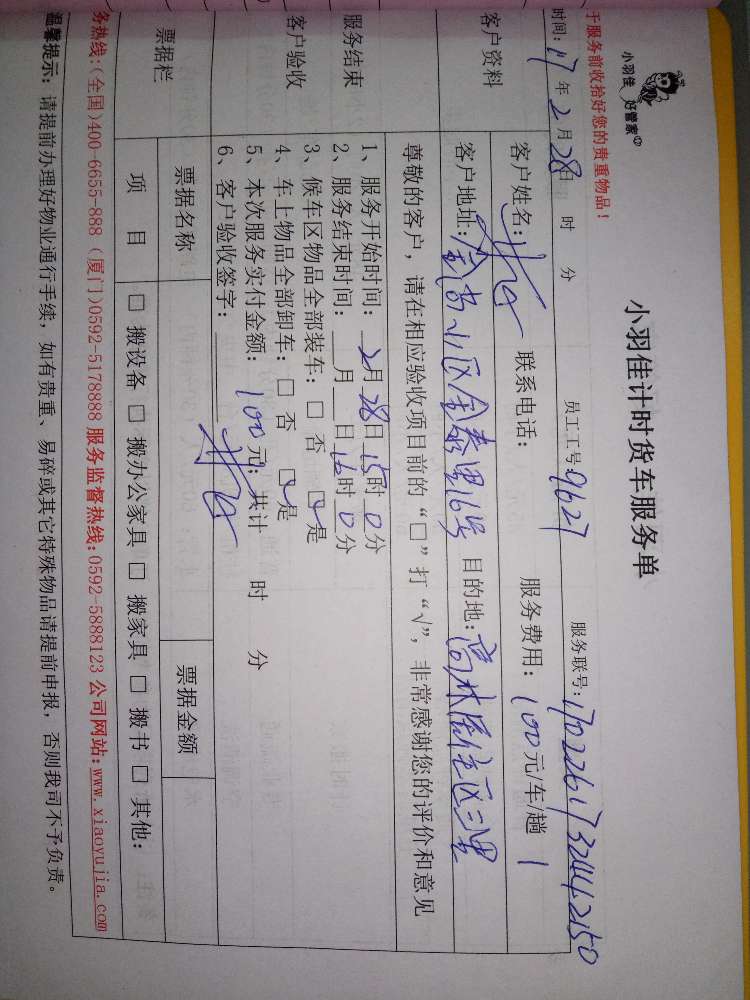 小羽佳 好管家
于服务前收拾好您的贵重物品！
小羽佳计时货车服务单
时间：17年2月28日 时 分 员工工号：9627 服务联号：17022617324442150
客户资料
客户姓名： 联系电话： 服务费用：100元/车/趟 1
客户地址：金尚小区金泰里16号 目的地：高林居住区三里
服务结束
客户验收
尊敬的客户，请在相应验收项目前的“□”打“√”，非常感谢您的评价和意见
1、服务开始时间：2月28日15时0分
2、服务结束时间： 月 日16时0分
3、候车区物品全部装车：□ 否 ☑是
4、车上物品全部卸车：□ 否 ☑是
5、本次服务实付金额：100元；共计 时 分
6、客户验收签字：
票据栏
票据名称 票据金额
项 目 □ 搬设备 □ 搬办公家具 □ 搬家具 □ 搬书 □ 其他：
务热线：(全国)400-6655-888 (厦门)0592-5178888 服务监督热线：0592-5888123 公司网站：www.xiaoyujia.com
温馨提示：请提前办理好物业通行手续，如有贵重、易碎或其它特殊物品请提前申报，否则我司不予负责。